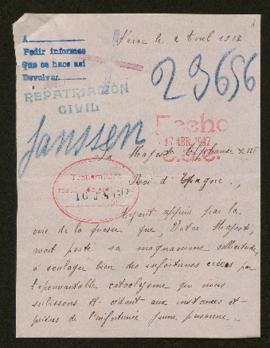 A
Pedir informes
Que se hace así
Devolver.
le 2 Avril 1917
29656
REPATRIACIÓN
CIVIL
Janssen
Fecho
17 ABR. 1917
A Sa Majesté Alphonse XIII
Roi d'Espagne,
Ayant appris par la
de la guerre que, Votre Majesté,
avait porté sa magnanime sollicitude,
à soulager bien des infortunes créées par
l'épouvantable cataclysme que nous
subissons et cédant aux instances et
prières de l'infortunée jeune personne